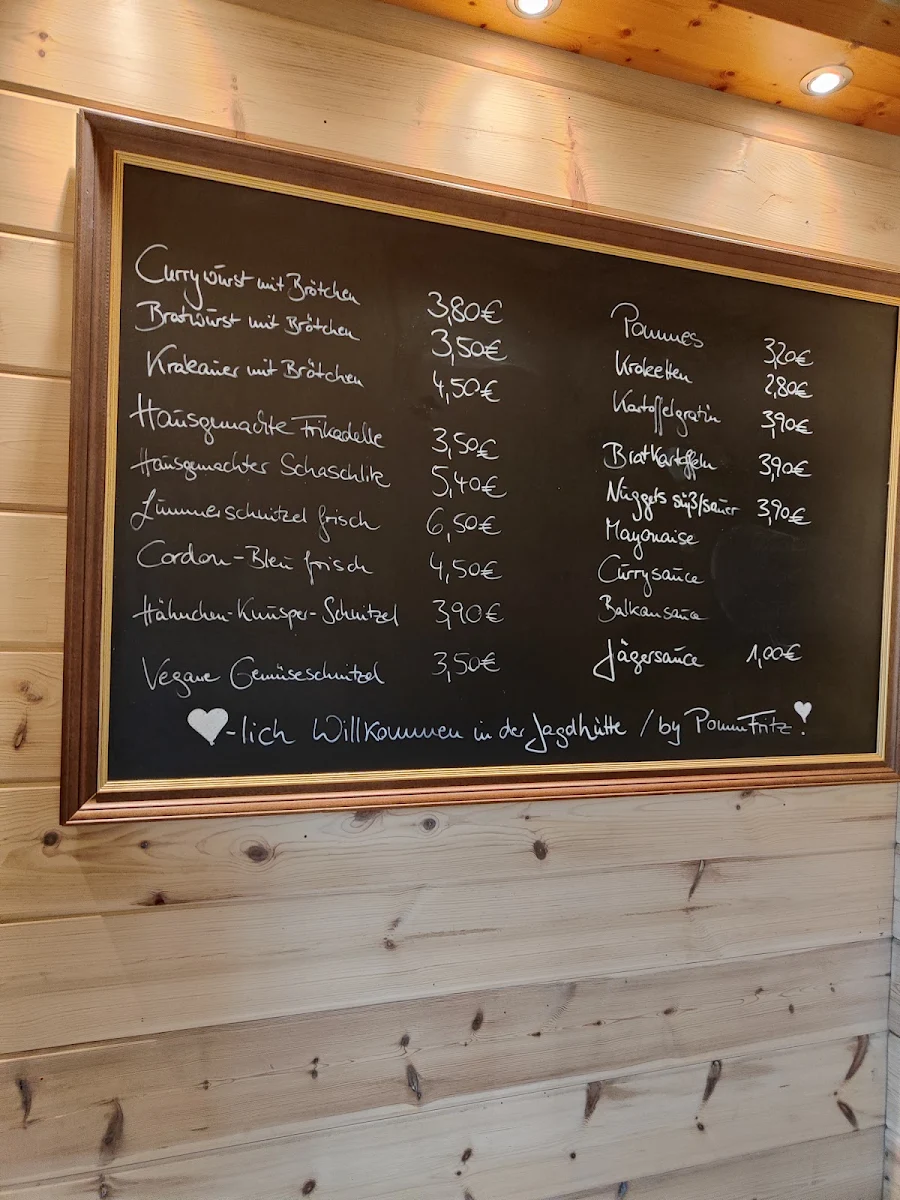 Currywurst mit Brötchen 3,80€
Bratwurst mit Brötchen 3,50€
Krakauer mit Brötchen 4,50€
Hausgemachte Frikadelle 3,50€
Hausgemachter Schaschlik 5,40€
Lummerschnitzel frisch 6,50€
Cordon-Bleu frisch 4,50€
Hähnchen-Knusper-Schnitzel 3,90€
Vegane Gemüseschnitzel 3,50€
Pommes 3,20€
Kroketten 2,80€
Kartoffelgratin 3,90€
Bratkartoffeln 3,90€
Nuggets süß/sauer 3,90€
Mayonaise
Currysauce
Balkansauce
Jägersauce 1,00€
-lich Willkommen in der Jagdhütte / by PommFritz!